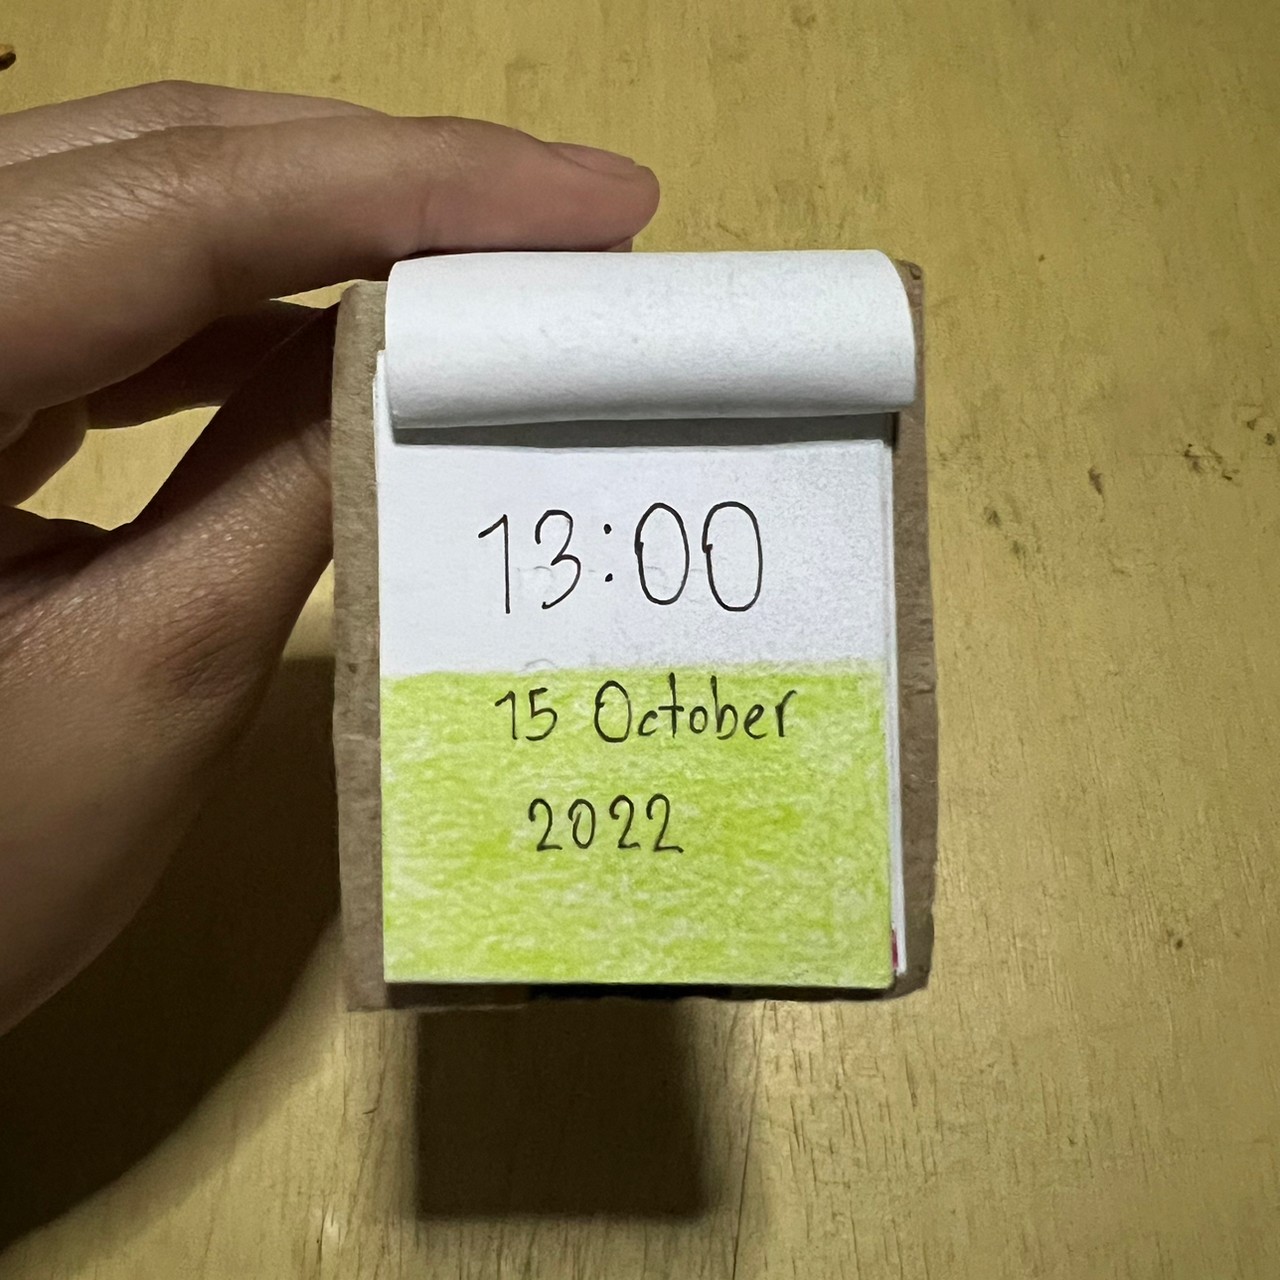 13:00
15 October
2022